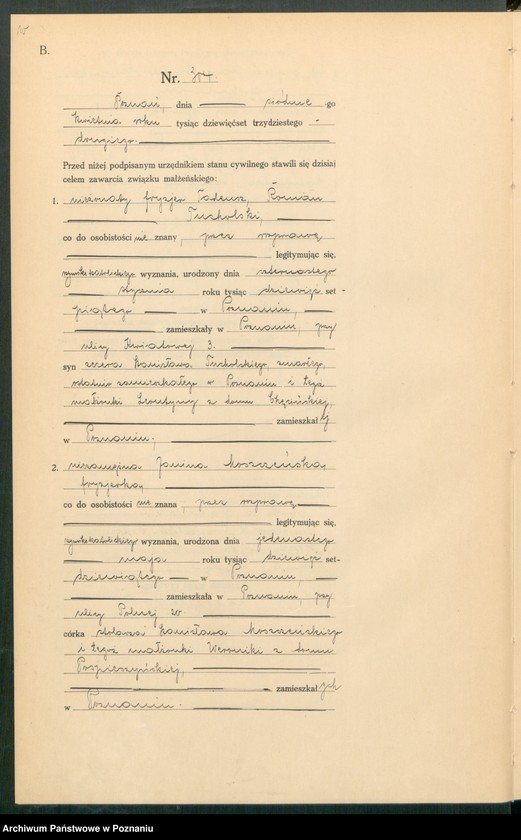 B.
Nr. 304
Poznań, dnia siódme go
kwietnia roku tysiąc dziewięćset trzydziestego
drugiego.
Przed niżej podpisanym urzędnikiem stanu cywilnego stawili się dzisiaj
celem zawarcia związku małżeńskiego:
1. nieżonaty fryzjer Tadeusz, Roman
Tucholski,
co do osobistości nie znany, przez rozprawę
legitymując się,
rzymsko katolickiego wyznania, urodzony dnia czternastego
stycznia roku tysiąc dziewięć set-
piątego w Poznaniu,
zamieszkały w Poznaniu, przy
ulicy Kwiatowej 3.
syn szewca Stanisława Tucholskiego, zmarłego,
ostatnio zamieszkałego w Poznaniu i tegoż
małżonki Leontyny z domu
zamieszkałej
w Poznaniu,
2. niezamężna Janina Moszczeńska,
fryzjerka,
co do osobistości nie znana, przez rozprawę
legitymując się,
rzymsko katolickiego wyznania, urodzona dnia jedenastego
maja roku tysiąc dziewięć set-
dziewiątego w Poznaniu,
zamieszkała w Poznaniu, przy
ulicy Polnej
córka stolarza Stanisława Moszczeńskiego
i tegoż małżonki Weroniki z domu
zamieszkałych
w Poznaniu.
Archiwum Państwowe w Poznaniu